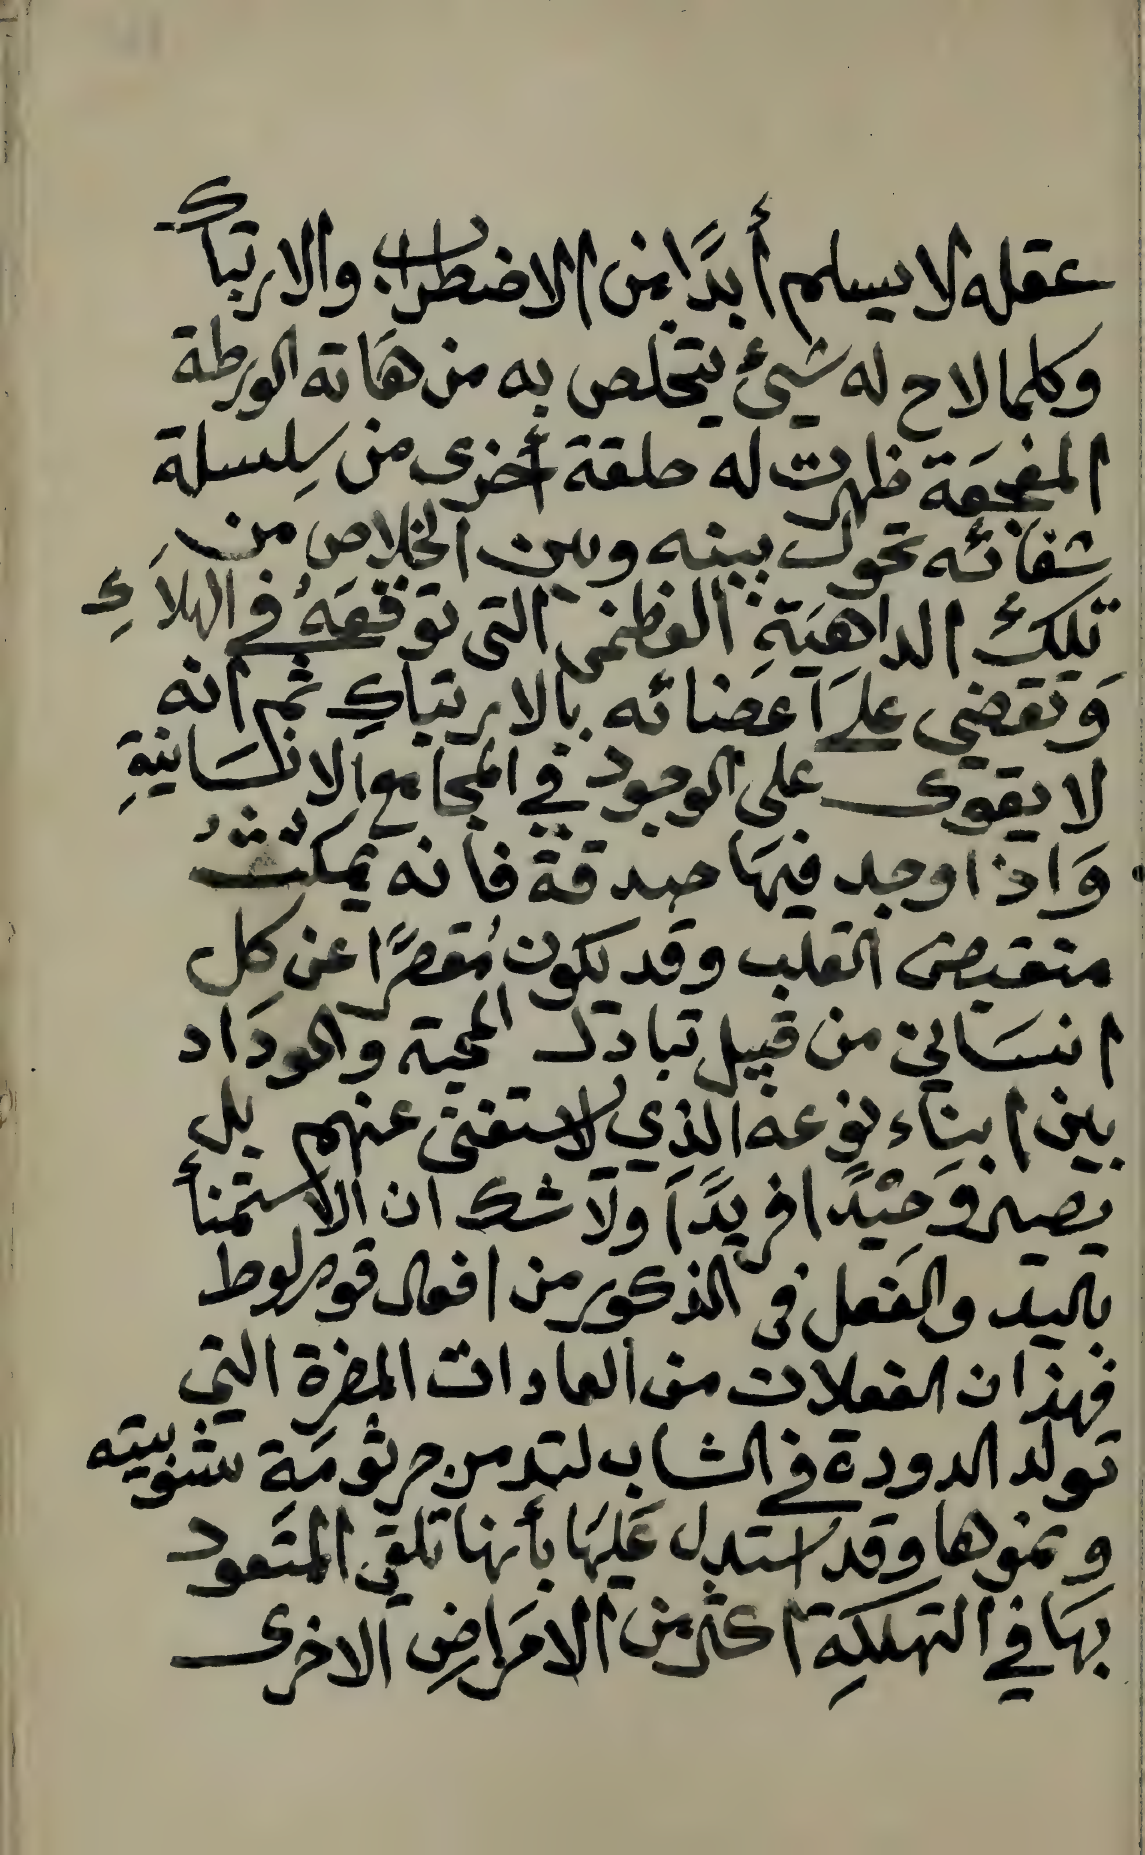 عقله لا يسلم أبدًا من الاضطراب والارتباك
وكلما لاح له شيئ يتخلص به من هاته الورطة
المفجعَة ظهرت له حلقة أخرى من سِلسلة
شقائه تحول بينه وبين الخلاص من
تلك الداهيَةِ العظمى التي توقعَهُ في الهلاَءِ
وَتقضي علىَ آعضائه بالارتباكِ ثم انه
لا يقوى على الوجود في المجامع الانسَانيةِ
وَاذا وجد فيهَا صدقة فانه يمكث
منقبض القلب وقد يكون مُقصرًا عن كل
انسَاني من قبيل تبادل المحبة والودَاد
بين ابناء نوعه الذي لاستغنى عنهم بل
يصير وَحيْدًا فريدًا وَلا شك ان الاستمنأ
باليد والفعل في الذكور من افعال قوم لوط
فهذان الفعلات من العادات المضرة التي
تولد الدودة في الشاب لتد من جرثومَة شنوبيته
ونموها وقد استدل عَليهَا بأنها تلقي المتعود
بهَا في التهلكةِ اكثر من الامرَاضِ الاخرى